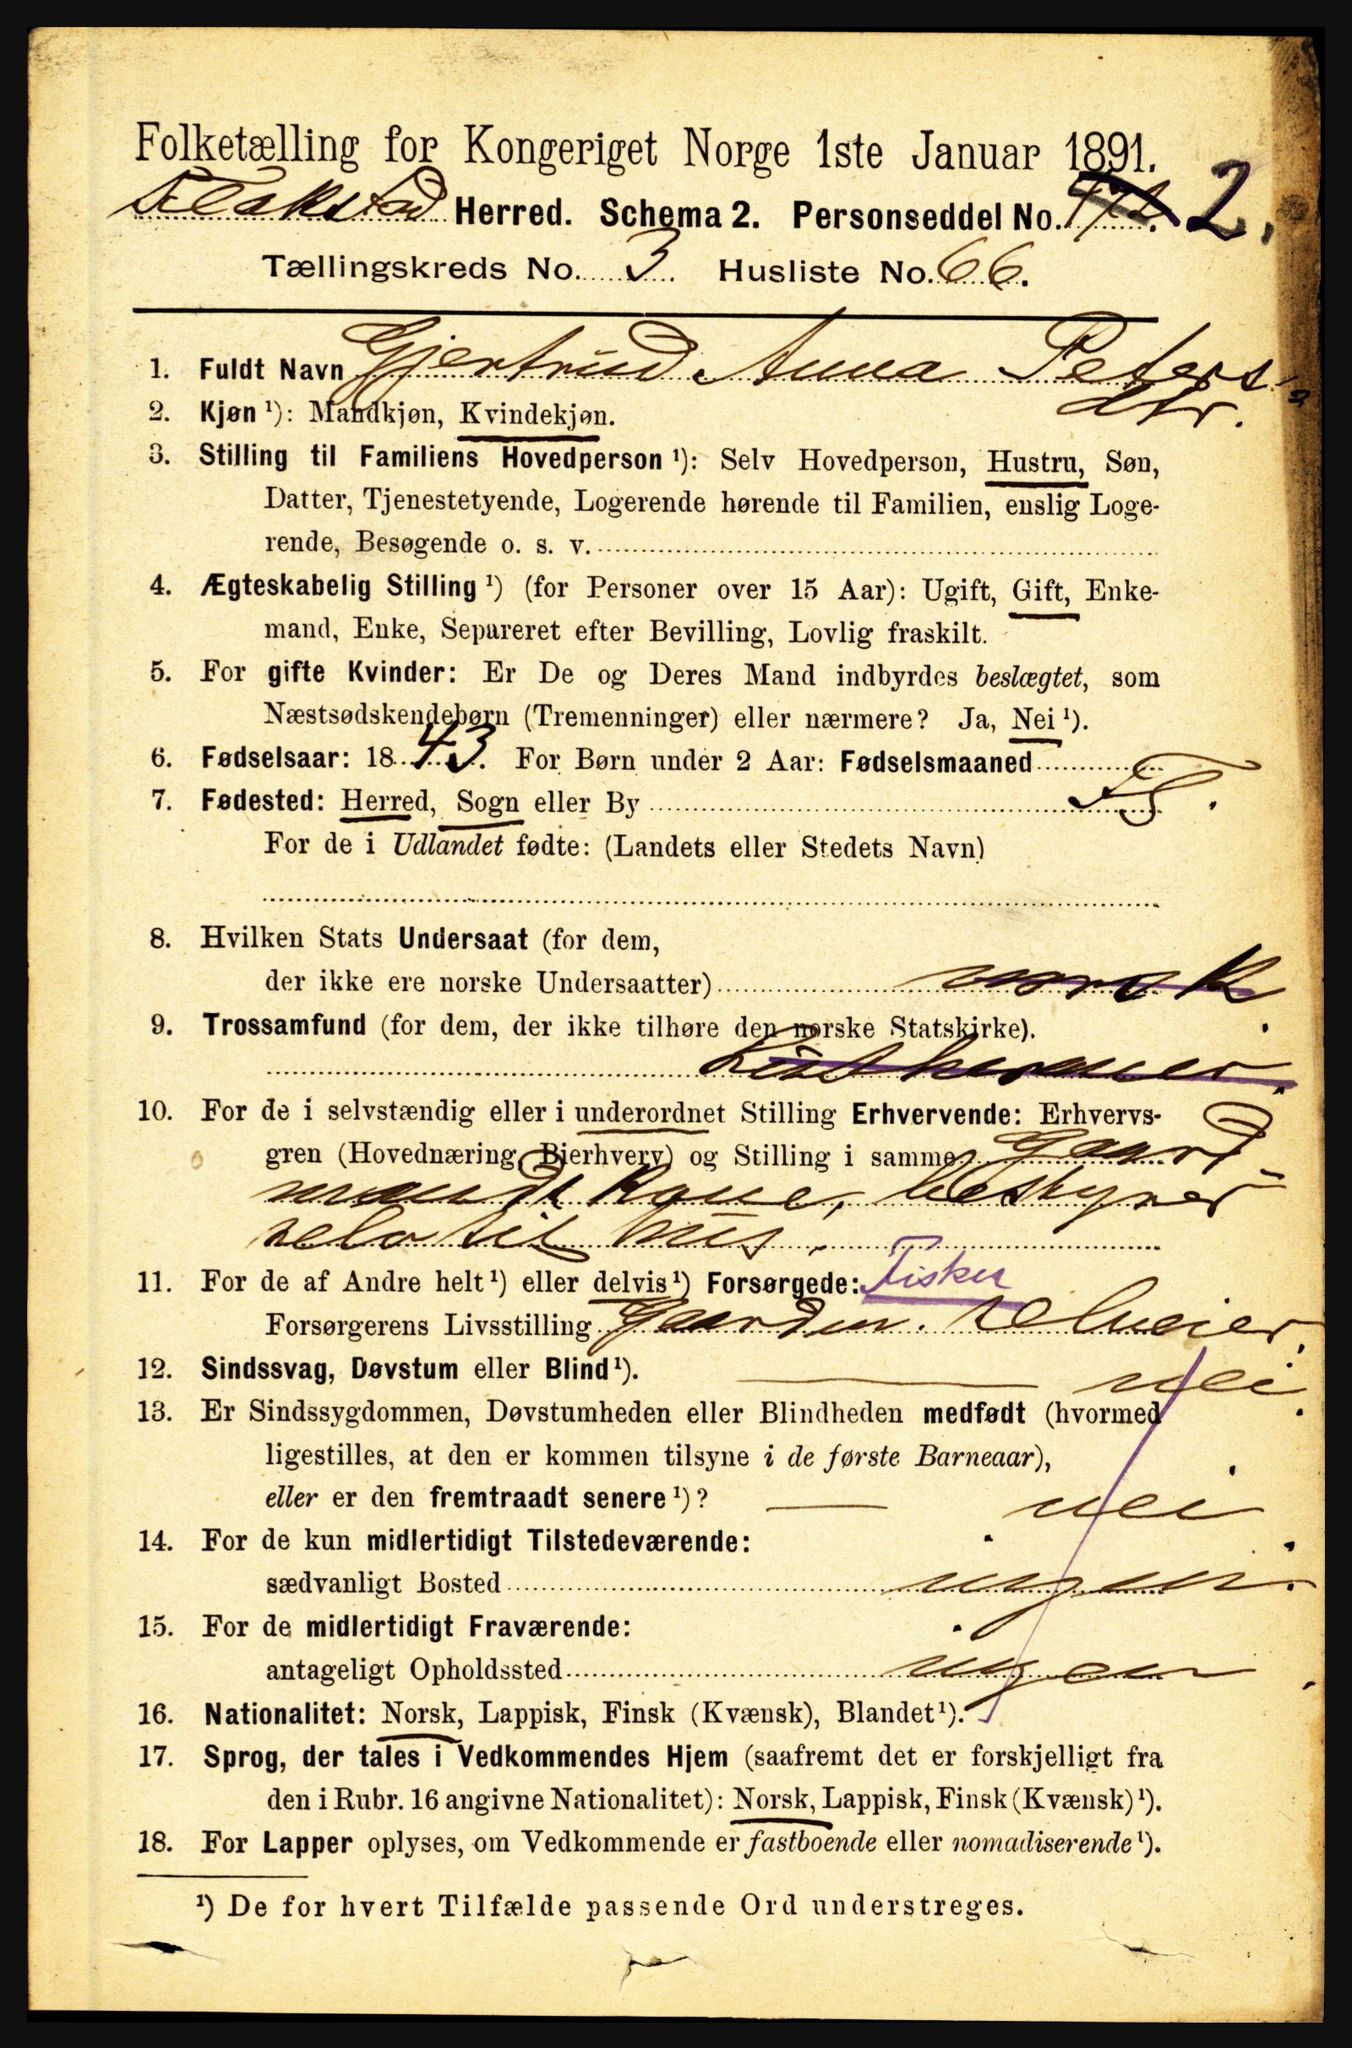 Folketælling for Kongeriget Norge 1ste Januar 1891.
Flakstad Herred. Schema 2. Personseddel No. 2.
Tællingskreds No. 3. Husliste No. 66.
1. Fuldt Navn Gjertrud Anna Peters-
dtr.
2. Kjøn ¹): Mandkjøn, Kvindekjøn.
3. Stilling til Familiens Hovedperson ¹): Selv Hovedperson, Hustru, Søn,
Datter, Tjenestetyende, Logerende hørende til Familien, enslig Loge-
rende, Besøgende o. s. v.
4. Ægteskabelig Stilling ¹) (for Personer over 15 Aar): Ugift, Gift, Enke-
mand, Enke, Separeret efter Bevilling, Lovlig fraskilt.
5. For gifte Kvinder: Er De og Deres Mand indbyrdes beslægtet, som
Næstsødskendebørn (Tremenninger) eller nærmere? Ja, Nei ¹).
6. Fødselsaar: 1843. For Børn under 2 Aar: Fødselsmaaned
7. Fødested: Herred, Sogn eller By Fl.
For de i Udlandet fødte: (Landets eller Stedets Navn)
8. Hvilken Stats Undersaat (for dem,
der ikke ere norske Undersaatter) norsk.
9. Trossamfund (for dem, der ikke tilhøre den norske Statskirke).
Lutheraner.
10. For de i selvstændig eller i underordnet Stilling Erhvervende: Erhvervs-
gren (Hovednæring, Bierhverv) og Stilling i samme Gaard-
mands Kone, bestyrer
selv sit hus.
11. For de af Andre helt ¹) eller delvis ¹) Forsørgede: Fisker
Forsørgerens Livsstilling Gaardm. selveier.
12. Sindssvag, Døvstum eller Blind ¹). nei.
13. Er Sindssygdommen, Døvstumheden eller Blindheden medfødt (hvormed
ligestilles, at den er kommen tilsyne i de første Barneaar),
eller er den fremtraadt senere ¹)? nei
14. For de kun midlertidigt Tilstedeværende:
sædvanligt Bosted ingen.
15. For de midlertidigt Fraværende:
antageligt Opholdssted ingen.
16. Nationalitet: Norsk, Lappisk, Finsk (Kvænsk), Blandet ¹).
17. Sprog, der tales i Vedkommendes Hjem (saafremt det er forskjelligt fra
den i Rubr. 16 angivne Nationalitet): Norsk, Lappisk, Finsk (Kvænsk) ¹).
18. For Lapper oplyses, om Vedkommende er fastboende eller nomadiserende ¹).
¹) De for hvert Tilfælde passende Ord understreges.